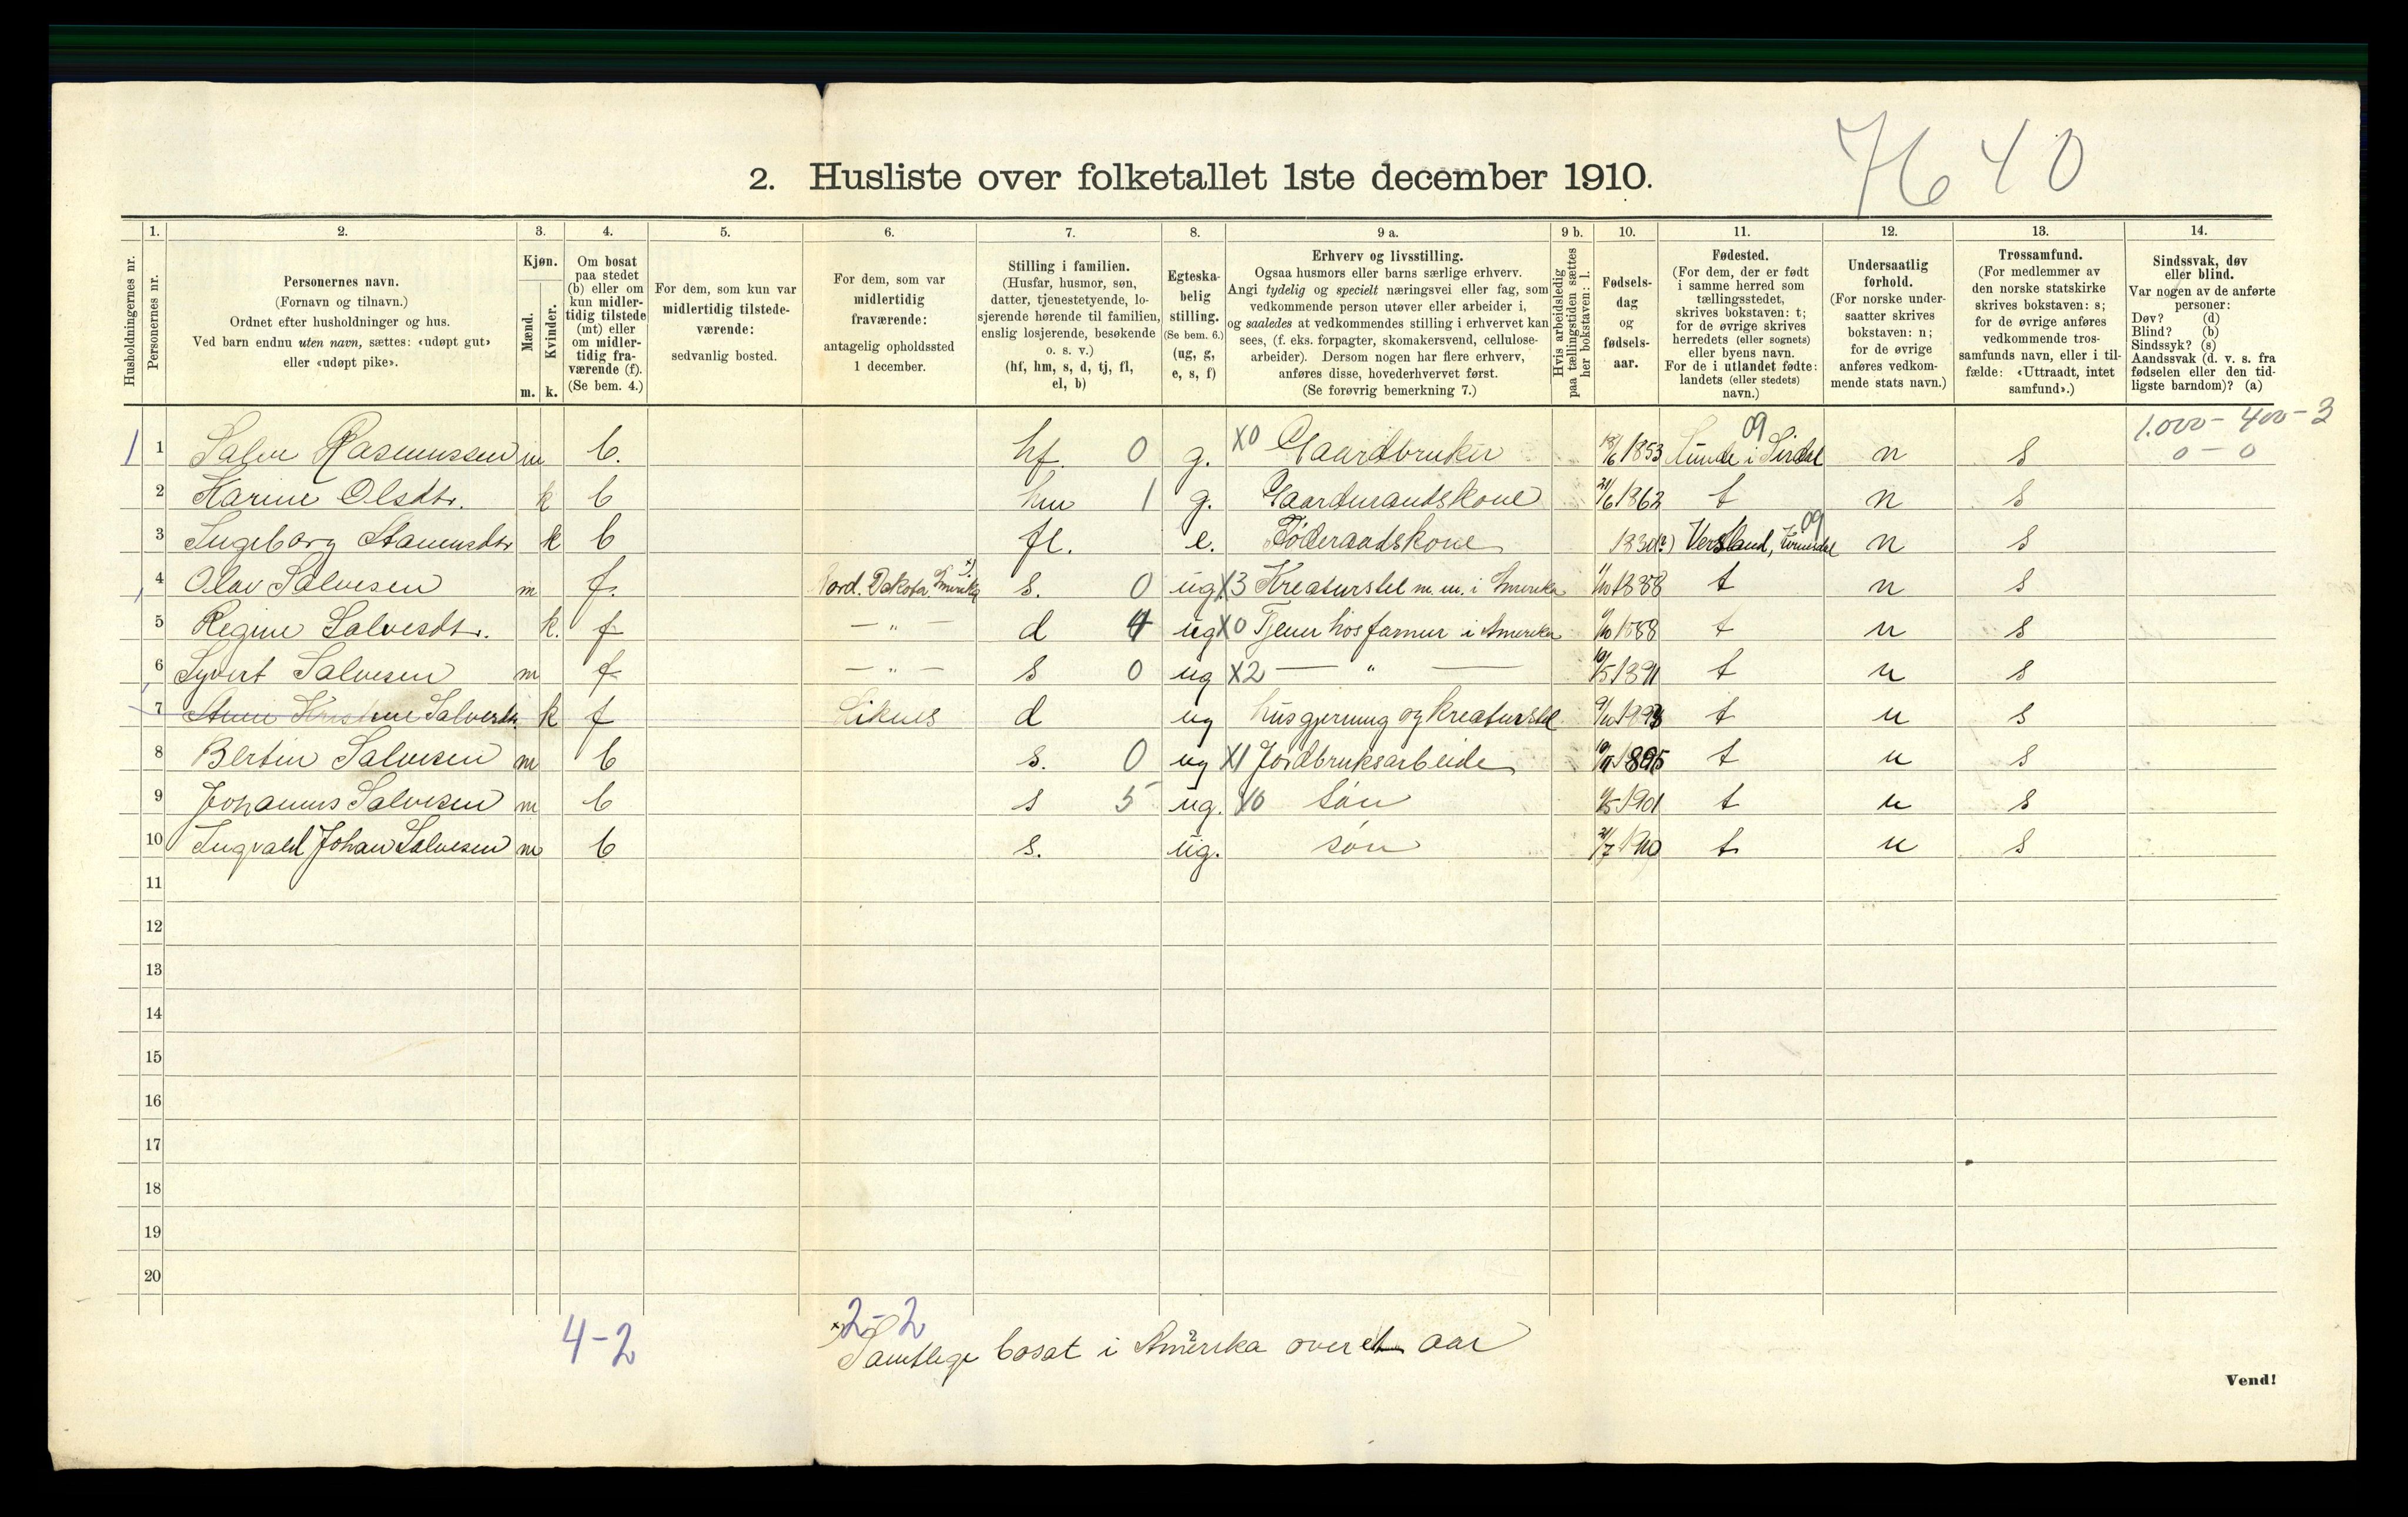 7640
2. Husliste over folketallet 1ste december 1910.
1. 2. 3. 4. 5. 6. 7. 8. 9 a. 9 b. 10. 11. 12. 13. 14.
Husholdningernes nr.
Personernes nr.
Personernes navn.
(Fornavn og tilnavn.)
Ordnet efter husholdninger og hus.
Ved barn endnu uten navn, sættes: «udøpt gut»
eller «udøpt pike».
Kjøn.
Mænd.
Kvinder.
m. k.
Om bosat
paa stedet
(b) eller om
kun midler-
tidig tilstede
(mt) eller
om midler-
tidig fra-
værende (f).
(Se bem. 4.)
For dem, som kun var
midlertidig tilstede-
værende:
sedvanlig bosted.
For dem, som var
midlertidig
fraværende:
antagelig opholdssted
1 december.
Stilling i familien.
(Husfar, husmor, søn,
datter, tjenestetyende, lo-
sjerende hørende til familien,
enslig losjerende, besøkende
o. s. v.)
(hf, hm, s, d, tj, fl,
el, b)
Egteska-
belig
stilling.
(Se bem. 6.)
(ug, g,
e, s, f)
Erhverv og livsstilling.
Ogsaa husmors eller barns særlige erhverv.
Angi tydelig og specielt næringsvei eller fag, som
vedkommende person utøver eller arbeider i,
og saaledes at vedkommendes stilling i erhvervet kan
sees, (f. eks. forpagter, skomakersvend, cellulose-
arbeider). Dersom nogen har flere erhverv,
anføres disse, hovederhvervet først.
(Se forøvrig bemerkning 7.)
Hvis arbeidsledig
paa tællingstiden sættes
her bokstaven: l.
Fødsels-
dag
og
fødsels-
aar.
Fødested.
(For dem, der er født
i samme herred som
tællingsstedet,
skrives bokstaven: t;
for de øvrige skrives
herredets (eller sognets)
eller byens navn.
For de i utlandet fødte:
landets (eller stedets)
navn.)
Undersaatlig
forhold.
(For norske under-
saatter skrives
bokstaven: n;
for de øvrige
anføres vedkom-
mende stats navn.)
Trossamfund.
(For medlemmer av
den norske statskirke
skrives bokstaven: s;
for de øvrige anføres
vedkommende tros-
samfunds navn, eller i til-
fælde: «Uttraadt, intet
samfund».)
Sindssvak, døv
eller blind.
Var nogen av de anførte
personer:
Døv? (d)
Blind? (b)
Sindssyk? (s)
Aandssvak (d. v. s. fra
fødselen eller den tid-
ligste barndom)? (a)
1.000 - 400 - 3
0 - 0
09
1 1 Salve Rasmussen m b. hf. 0 g. X0 Gaardbruker 18/6 1853 Sunde i Sirdal n s
2 Karine Olsdtr. k b hm 1 g. Gaardmandskone 21/6 1862 t n s
09
3 Ingeborg k b fl. e. Føderaadskone 1830(?) n s
4 Olav Salvesen m f. Nord. Dakota Amerika x) s. 0 ug X3 Kreaturstel m. m. i Amerika 1888 t n s
5 Regine Salvesdtr. k. f — " — d 4 ug X0 Tjener hos farmer i Amerika 1888 t n s
6 Syvert Salvesen m f — " — s 0 ug X2 — " — 10/5 1891 t n s
7 Salvesdtr. k f Liknes d ug Husgjerning og kreaturstel t n s
8 Bertin Salvesen m b s. 0 ug X1 Jordbruksarbeide 1895 t n s
9 Johannes Salvesen m b s 5 ug. X0 Søn 1901 t n s
10 Ingvald Johan Salvesen m b s. ug. søn 21/7 1910 t n s
11
12
13
14
15
16
17
18
19
20
4-2
2-2
x) Samtlige bosat i Amerika over et 2 aar
Vend!